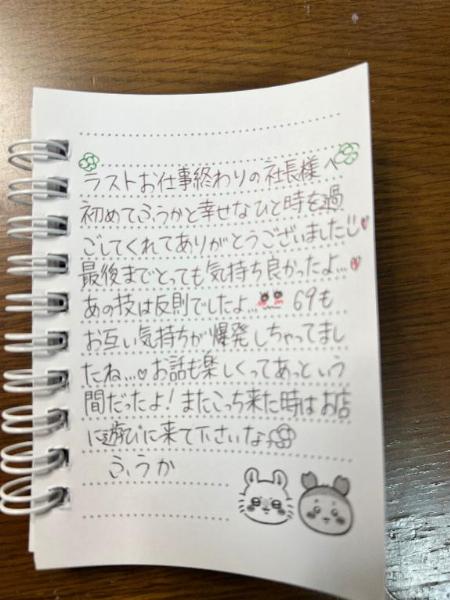 ラストお仕事終わりの社長様へ
初めてふうかと幸せなひと時を過
ごしてくれてありがとうございました
最後までとっても気持ち良かったよ...
あの技は反則でしたよ... 69も
お互い気持ちが爆発しちゃってまし
たね...♡お話も楽しくってあっという
間だったよ!またこっち来た時はお店
に遊びに来て下さいな
ふうか